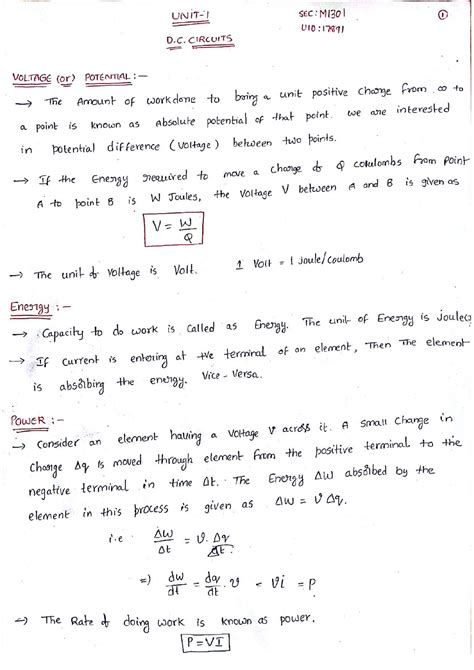 UNIT-1
SEC: M1301
①
UID: 17891
D.C. CIRCUITS
VOLTAGE (or) POTENTIAL :-
→ The Amount of workdone to bring a unit positive charge from ∞ to
a point is known as absolute potential of that point. we are interested
in potential difference (voltage) between two points.
→ If the Energy required to move a charge of Q coulombs from point
A to point B is W Joules, the voltage V between A and B is given as
V = W/Q
→ The unit of voltage is Volt. 1 Volt = 1 Joule/coulomb
Energy :-
→ Capacity to do work is called as Energy. The unit of Energy is joule(J
→ If current is entering at +ve terminal of an element, Then The element
is absorbing the energy. Vice-Versa.
POWER :-
→ Consider an element having a voltage v across it. A small change in
charge Δq is moved through element from the positive terminal to the
negative terminal in time Δt. The Energy ΔW absorbed by the
element in this process is given as ΔW = v Δq.
i.e ΔW/Δt = v. Δq/Δt
=) dw/dt = dq/dt . v = vi = P
→ The Rate of doing work is known as power.
P=VI